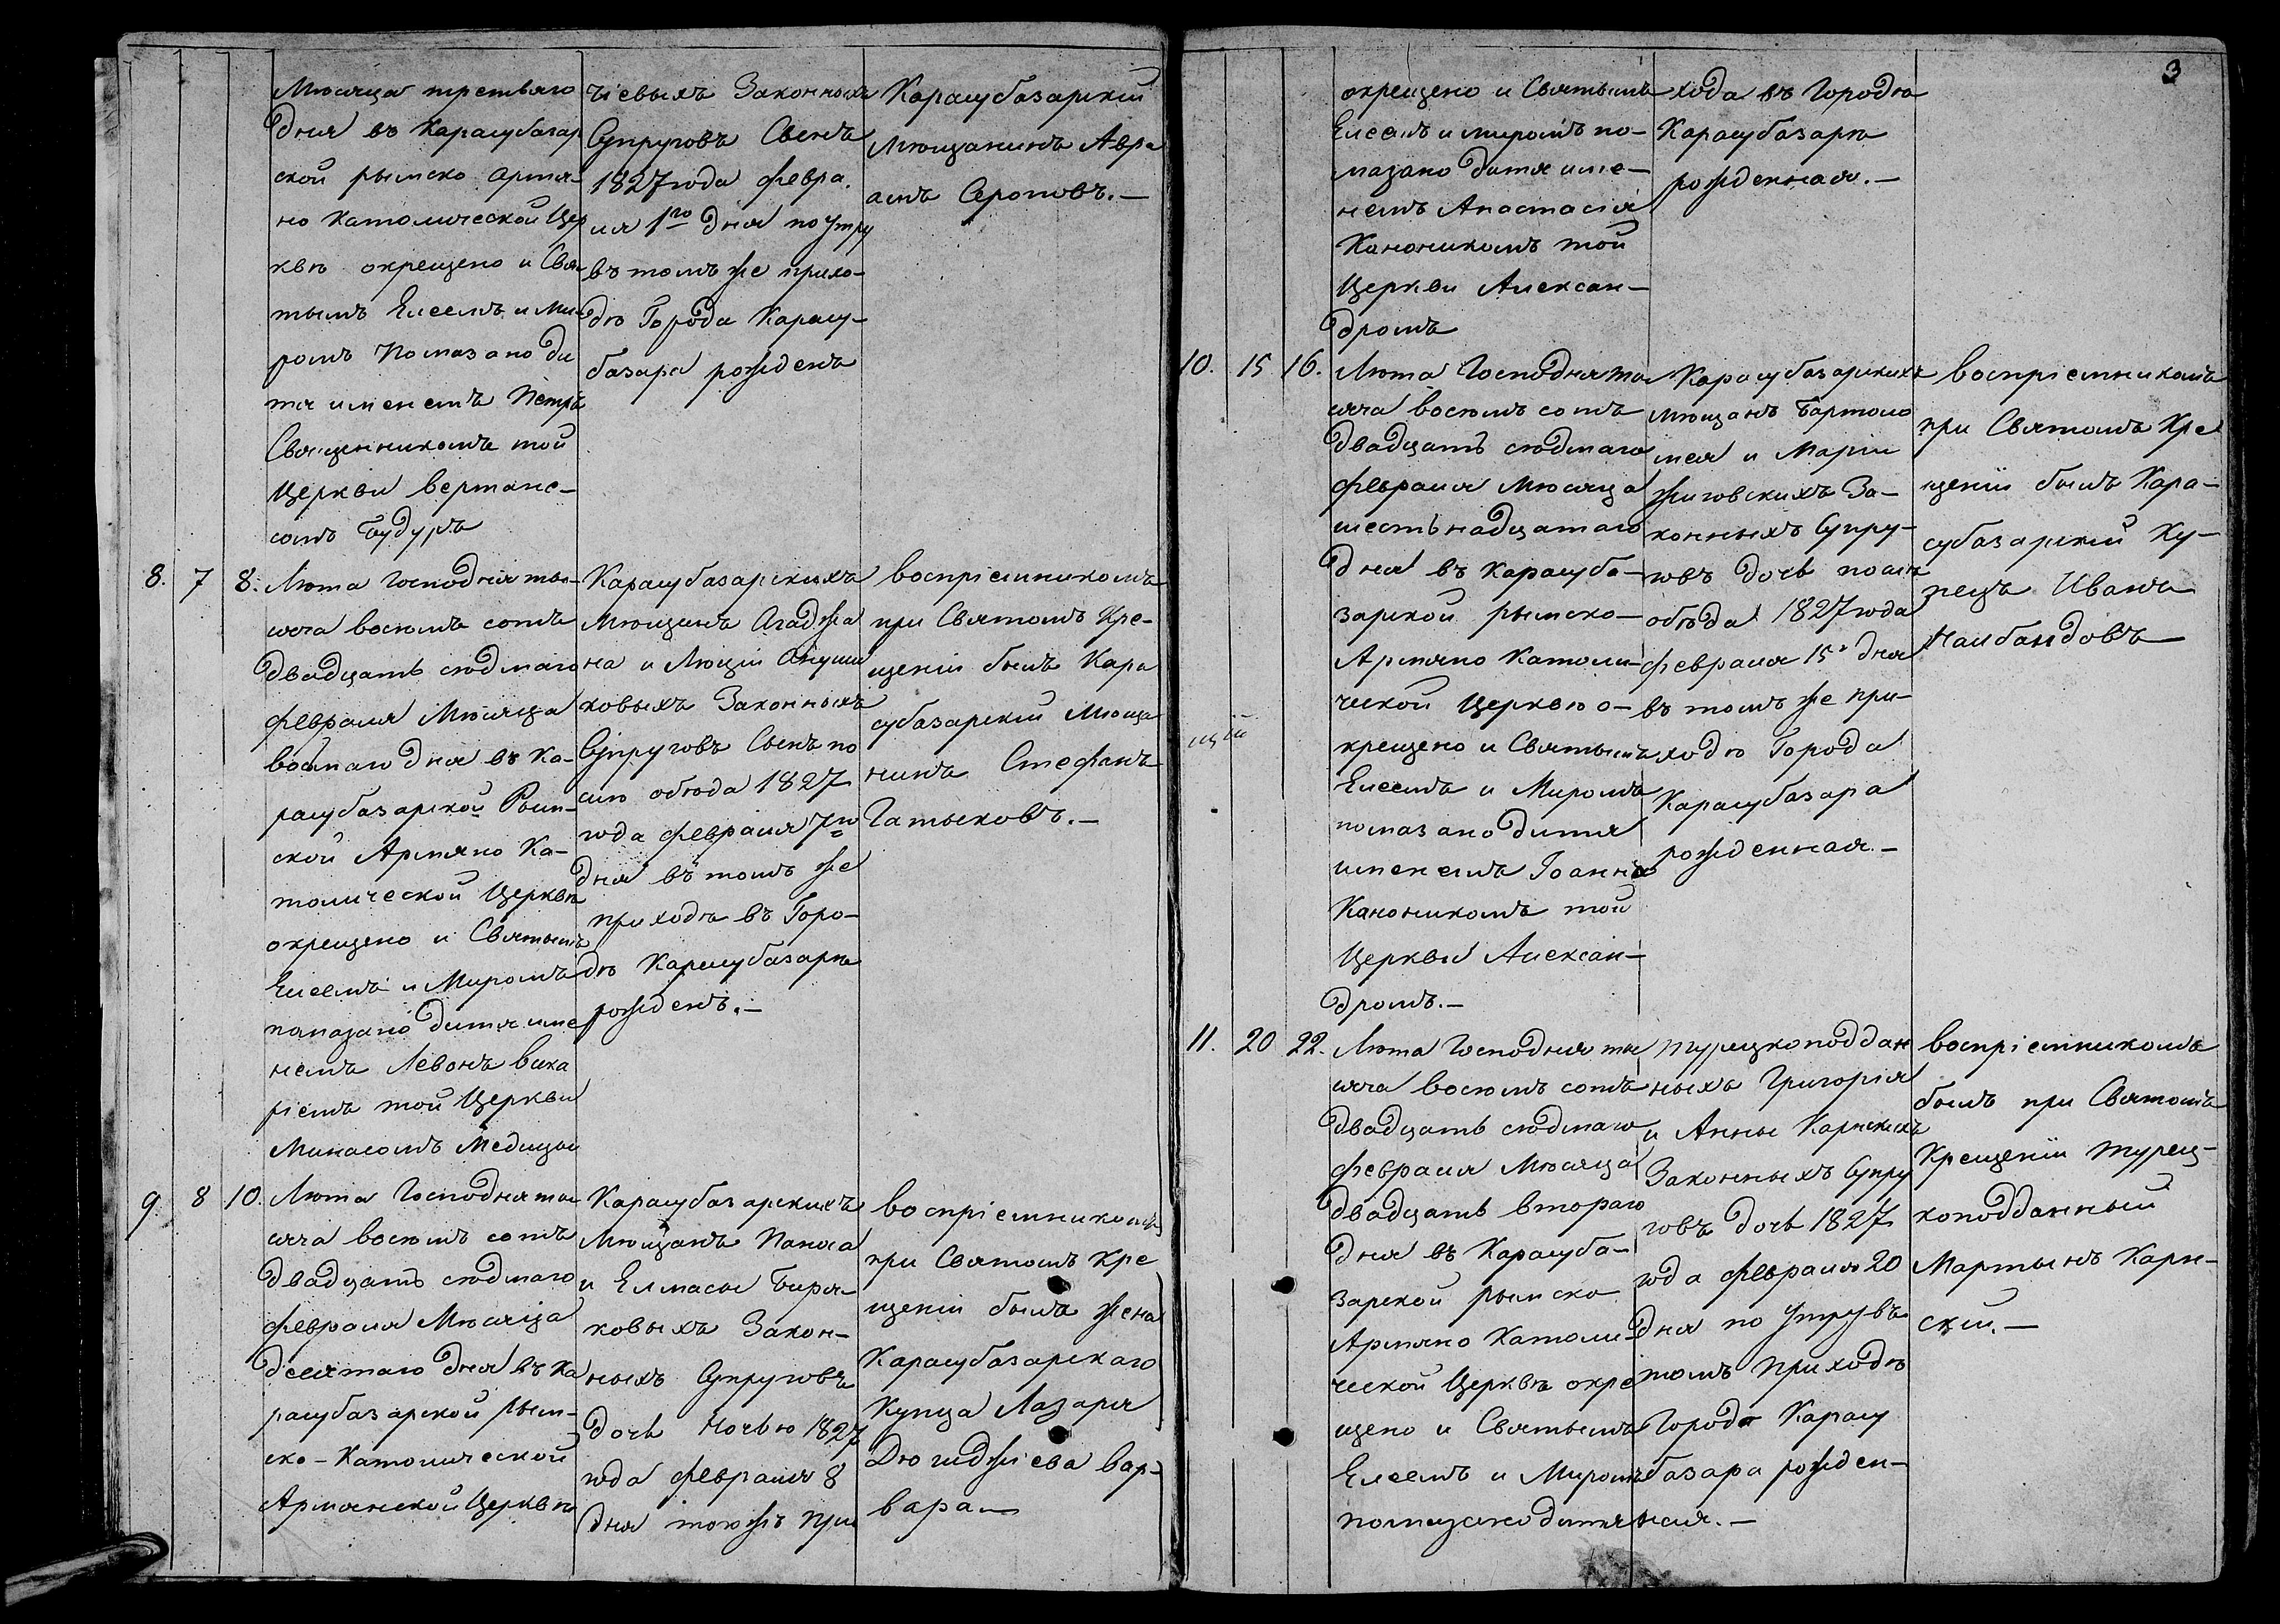 Мѣсяца третьяго
дня въ Карасубазар
ской рымско армя-
но Католической Цер
квѣ окрещено и Свя-
тымъ Елеемъ и Ми-
ромъ Помазано ди
тя именемъ Петръ
Священникомъ той
Церкви Вертане-
сомъ Будуръ
чіевыхъ Законныхъ
Супруговъ Сынъ
1827 года Февра.
ля 1го дня по утру
въ томъ же прихо-
дѣ Города Карасу-
базара рожденъ
Карасубазарскій
Мѣщанинъ Авра
амъ Сероповъ.—
8. 7 8. Лѣта Господня ты-
сяча восемъ сотъ
двадцать седмаго
Февраля Мѣсяца
восмаго дня въ Ка-
расубазарской Рым-
ской Армяно Ка-
толической Церквѣ
окрещено и Святымъ
Елеемъ и Миромъ
помазано дитя име
немъ Левонъ Вика
ріемъ той Церкви
Минасомъ Медицы
Карасубазарскихъ
Мѣщанъ Агаджа
на и Люціи
ковыхъ Законныхъ
Супруговъ Сынъ по
слѣ обѣда 1827
года Февраля 7го
дня въ томъ же
приходѣ въ Горо-
дѣ Карасубазарѣ
рожденъ.—
воспріемникомъ
при Святомъ Кре-
щеніи былъ Кара
субазарскій Мѣща
нинъ Стефанъ
Гатыковъ.—
9. 8 10. Лѣта Господня ты
сяча восемъ сотъ
двадцать седмаго
Февраля Мѣсяца
десятаго дня въ Ка
расубазарской рым-
ско-Католической
Армянской Церквѣ
Карасубазарскихъ
Мѣщанъ Паноса
и Елмасы Биря-
ковыхъ Закон-
ныхъ Супруговъ
дочь ночью 1827
года Февраля 8
дня тогожъ при
воспріемникомъ
при Святомъ Кре
щеніи была жена
Карасубазарскаго
Купца Лазаря
Дюгиджіева Вар-
вара.—
3
окрещено и Святымъ
Елеемъ и миромъ по-
мазано дитя име-
немъ Анастасія
Каноникомъ той
Церкви Алексан-
дромъ
хода въ Городѣ
Карасубазарѣ
рожденная.—
10. 15 16. Лѣта Господня ты
сяча восемъ сотъ
двадцать седмаго
Февраля Мѣсяца
шестьнадцатаго
дня въ Карасуба-
зарской рымско-
Армяно Католи-
ческой Церквѣ о-
крещено и Святымъ
Елеемъ и Миромъ
помазано дитя
именемъ Іоанна
Каноникомъ той
Церкви Алексан-
дромъ.—
Карасубазарскихъ
Мѣщанъ Бартоло
мея и Маріи
Жиговскихъ За-
конныхъ Супру-
говъ дочь послѣ
обѣда 1827 года
Февраля 15. дня
въ томъ же при-
ходѣ Города
Карасубазара
рожденная.—
воспріемникомъ
при Святомъ Кре
щеніи былъ Кара-
субазарскій Ку-
пецъ Иванъ
Налбандовъ
11. 20 22. Лѣта Господня ты
сяча восемъ сотъ
двадцать седмаго
Февраля Мѣсяца
двадцать втораго
дня въ Карасуба-
зарской рымско
Армяно Католи-
ческой Церквѣ окре
щено и Святымъ
Елеемъ и Миромъ
помазано дитя
турецкоподдан
ныхъ Григорія
и Анны Карнскихъ
Законныхъ Супру
говъ дочь 1827
года Февраля 20
дня по утру въ
томъ приходѣ
Города Карасу
базара рожден-
ная.—
воспріемникомъ
былъ при Святомъ
Крещеніи турец-
коподданный
Мартынъ Карн-
скій.—